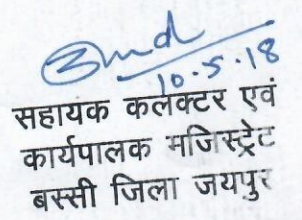 10.5.18
सहायक कलक्टर एवं
कार्यपालक मजिस्ट्रेट
बस्सी जिला जयपुर